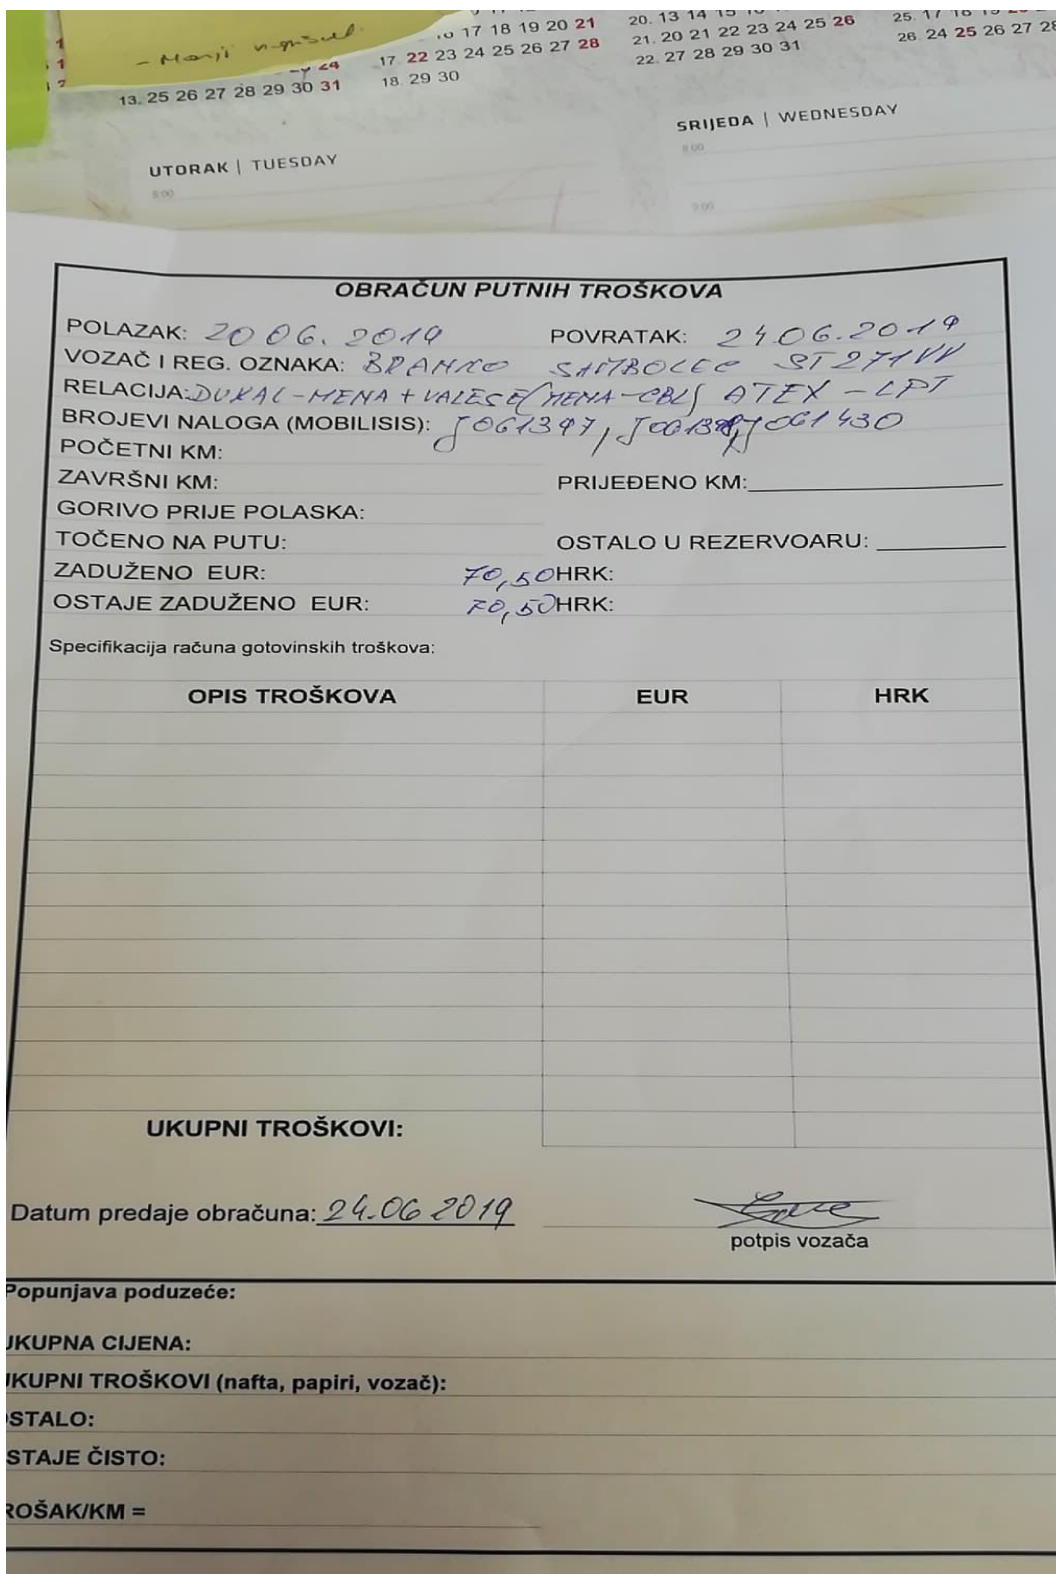 - Manji
10 17 18 19 20 21
17. 22 23 24 25 26 27 28
18. 29 30
24
13. 25 26 27 28 29 30 31
20. 13 14 15 16
21. 20 21 22 23 24 25 26
22. 27 28 29 30 31
25. 17 18 19
26. 24 25 26 27 28
UTORAK | TUESDAY
8:00
SRIJEDA | WEDNESDAY
8:00
9:00
OBRAČUN PUTNIH TROŠKOVA
POLAZAK: 20 06. 2019 POVRATAK: 24 06.2019
VOZAČ I REG. OZNAKA: BRANKO ST 271 VV
RELACIJA: DUKAL-MENA + VALESE/MENA-CBL/ ATEX - LPT
BROJEVI NALOGA (MOBILISIS): J061397, J061430
POČETNI KM:
ZAVRŠNI KM: PRIJEĐENO KM:
GORIVO PRIJE POLASKA:
TOČENO NA PUTU: OSTALO U REZERVOARU:
ZADUŽENO EUR: 70,50 HRK:
OSTAJE ZADUŽENO EUR: 70,50 HRK:
Specifikacija računa gotovinskih troškova:
OPIS TROŠKOVA EUR HRK
UKUPNI TROŠKOVI:
Datum predaje obračuna: 24.06 2019
potpis vozača
Popunjava poduzeće:
UKUPNA CIJENA:
UKUPNI TROŠKOVI (nafta, papiri, vozač):
STALO:
STAJE ČISTO:
ROŠAK/KM =